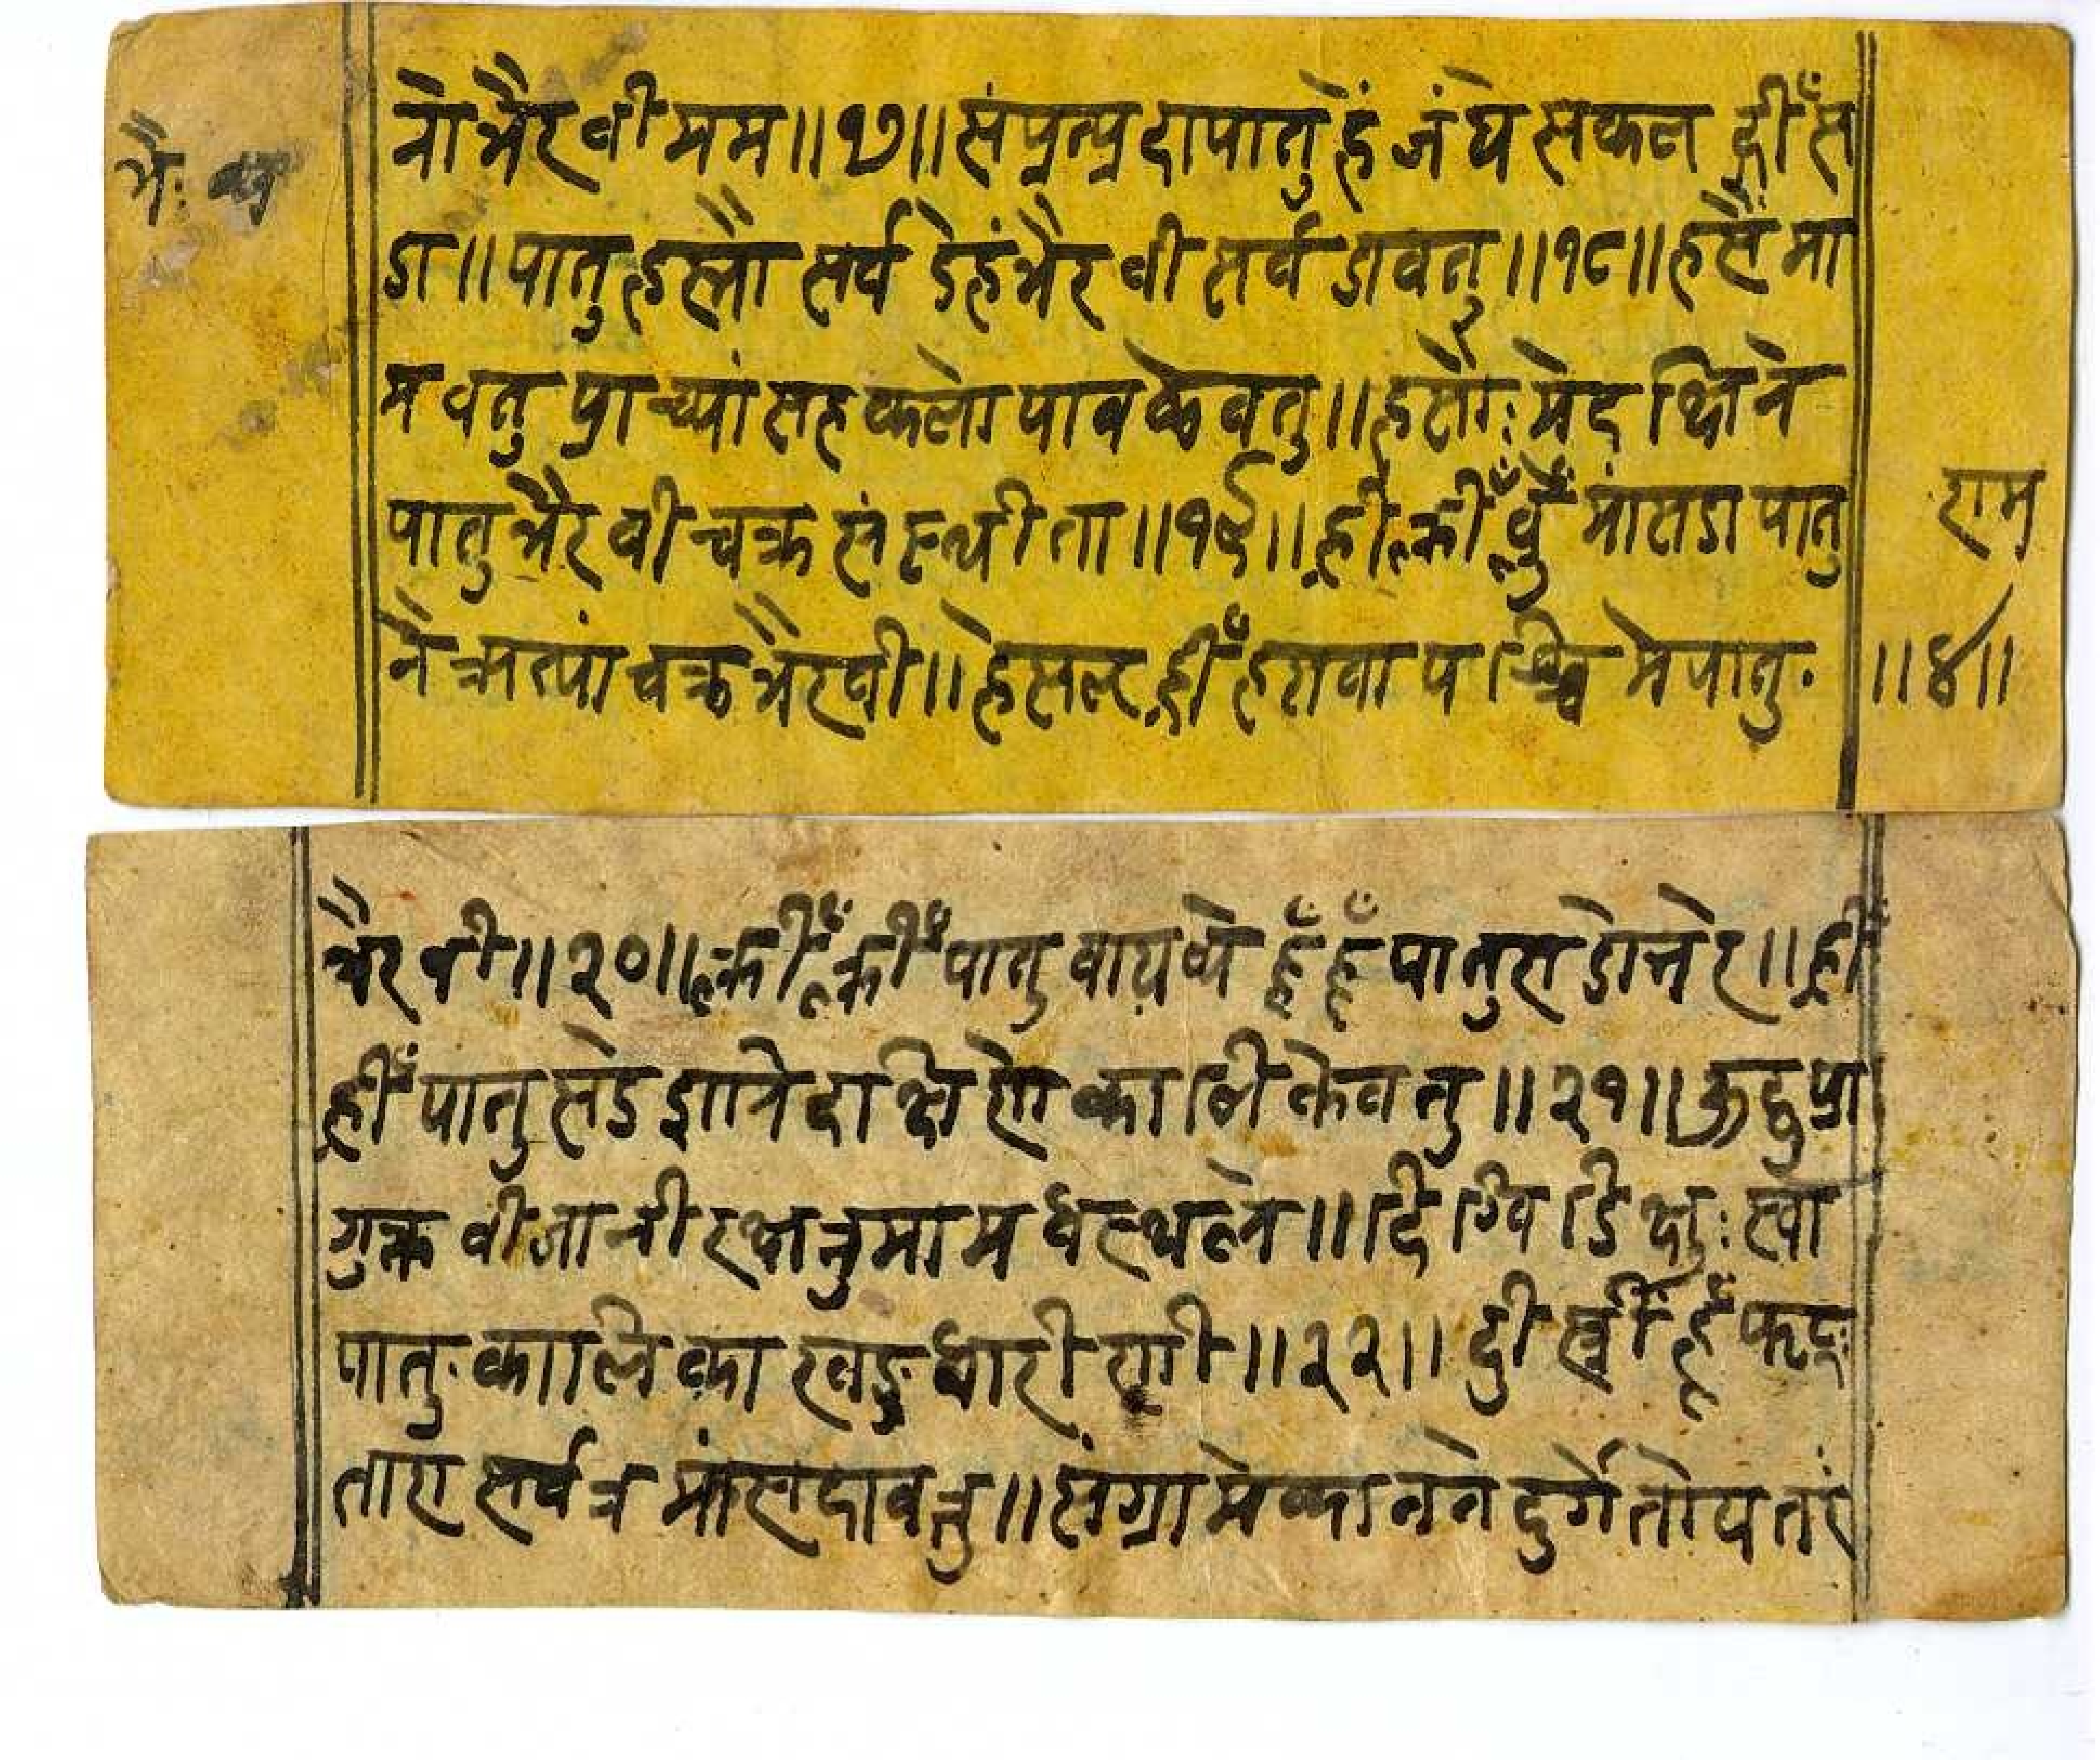 भैः क
त्रो भैरवी मम॥१७॥संप्रत्प्रदापातुह्रें जंघे सकल ह्रीँ स
डा॥पातु हस्रौ सर्व डेहं भैरवी सर्व डावतु॥१८॥हसैं मा
म वतु प्राच्यां सह कलो पावकेवतु॥हसौः मे दक्षिने
पातु भैरवी चक्र संस्थीता॥१९॥ह्रीँ क्लीँ मांसडा पातु
राम
नैऋत्यां चक्र भैरवी॥ ह्रीँ पश्चिमे पातु
॥४॥
भैरवी॥२०॥क्रीँ क्रीँ पातु वायव्ये हूँ हूँ पातु स डोत्तरे॥ह्रीँ
ह्रीँ पातु सडे ज्ञाने दक्षिणे कालीकेवतु॥२१॥ऊर्द्धु प्रा
गुक्त वीजानी रक्षतुमाम धस्थले॥दिग्विडिक्षुः स्वा
पातु कालिका खड्गधारीणी॥२२॥ स्त्रीँ हूँ फट्
तारा सर्वत्र मांसदावतु॥संग्रामे कानने दुर्गे तोयतरं